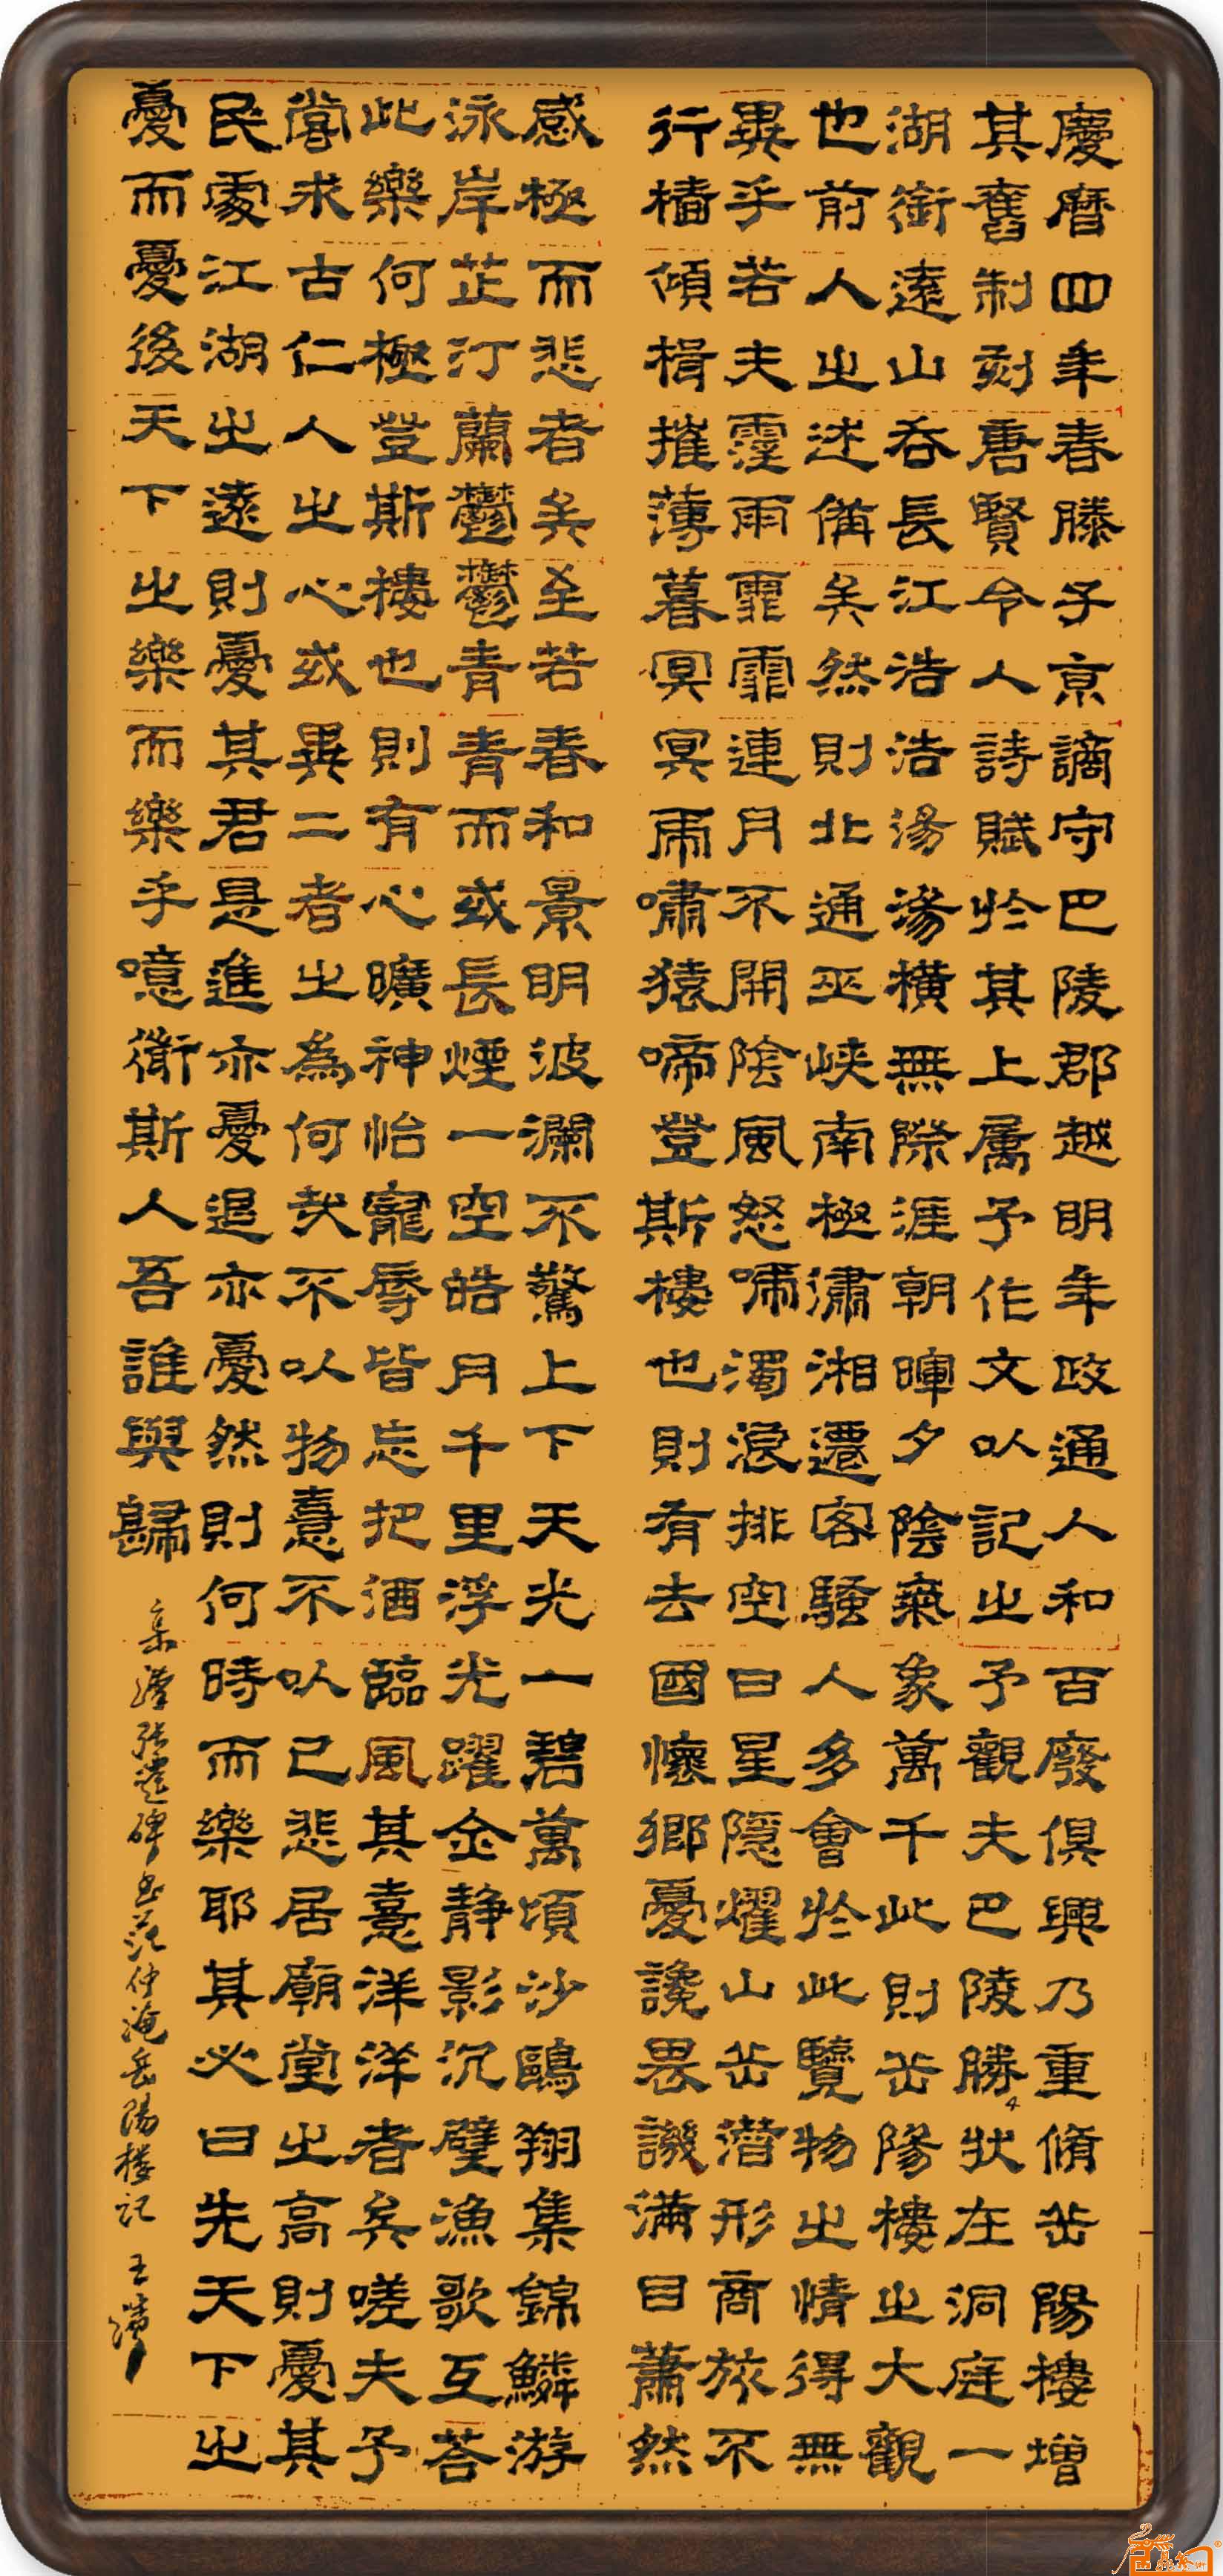 慶曆四年春滕子京謫守巴陵郡越明年政通人和百廢俱興乃重脩岳陽樓增
其舊制刻唐賢今人詩賦於其上属予作文以記之予觀夫巴陵勝狀在洞庭一
湖銜遠山吞長江浩浩湯湯橫無際涯朝暉夕陰氣象萬千此則岳陽樓之大觀
也前人之述備矣然則北通巫峽南極瀟湘遷客騷人多會於此覽物之情得無
異乎若夫霪雨霏霏連月不開陰風怒嘯濁浪排空日星隱燿山岳潛形商旅不
行檣傾楫摧薄暮冥冥虎嘯猿啼登斯樓也則有去國懷鄉憂讒畏譏滿目蕭然
感極而悲者矣至若春和景明波瀾不驚上下天光一碧萬頃沙鷗翔集錦鱗游
泳岸芷汀蘭鬱鬱青青而或長煙一空皓月千里浮光躍金静影沉璧漁歌互荅
此樂何極登斯樓也則有心曠神怡寵辱皆忘把酒臨風其憙洋洋者矣嗟夫予
嘗求古仁人之心或異二者之為何哉不以物憙不以己悲居廟堂之高則憂其
民處江湖之遠則憂其君是進亦憂退亦憂然則何時而樂耶其必曰先天下之
憂而憂後天下之樂而樂乎噫微斯人吾誰與歸
漢張遷碑書范仲淹岳陽楼記 王